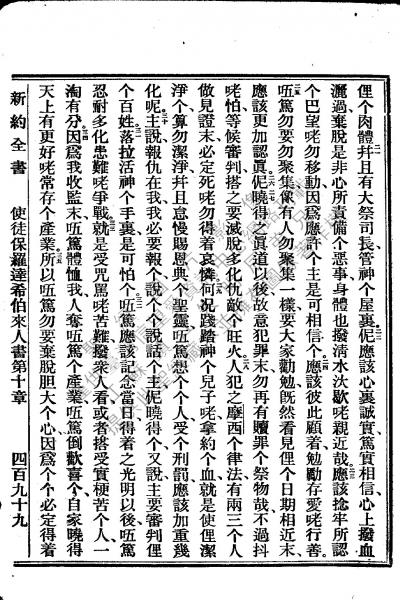 俚个肉體、并且有大祭司長管神个屋裏、伲應該心裏誠實篤實相信、心上撥血
灑過、棄脫是非心所責備个惡事、身體也撥清水汏歇咾親近哉、應該捻牢所認
个巴望咾勿移動、因爲應許个主是可相信个、應該彼此顧着、勉勵存愛咾行善、
唔篤勿要勿聚集、像有人勿聚集一樣、要大家勸勉、旣然看見俚个日期相近末、
應該更加認眞、伲曉得之眞道以後、故意犯罪末、勿再有贖罪个祭物哉、不過抖
咾怕、等候審判、搭之要滅脫多化仇敵个旺火、人犯之摩西个律法、有兩三个人
做見證末、必定死咾勿得着哀憐、何况踐踏神个兒子、咾拿約个血、就是使俚潔
淨个、算勿潔淨、并且怠慢賜恩典个聖靈、唔篤想个个人受个刑罰、應該加重幾
化呢、主說、報仇在我、我必要報个、說个个說話个主、伲曉得个、又說、主要審判俚
个百姓、落拉活神个手裏、是可怕个、唔篤應該記念當日得着之光明以後、唔篤
忍耐多化患難咾爭戰、就是受咒罵咾苦難、撥衆人看、或者搭受實梗苦个人一
淘有分、因爲我收監末、唔篤體恤我、人奪唔篤个產業、唔篤倒歡喜个、自家曉得
天上有更好咾常存个產業、所以唔篤勿要棄脫胆大个心、因爲个个必定得着
新約全書 使徒保羅達希伯來人書第十章 四百九十九